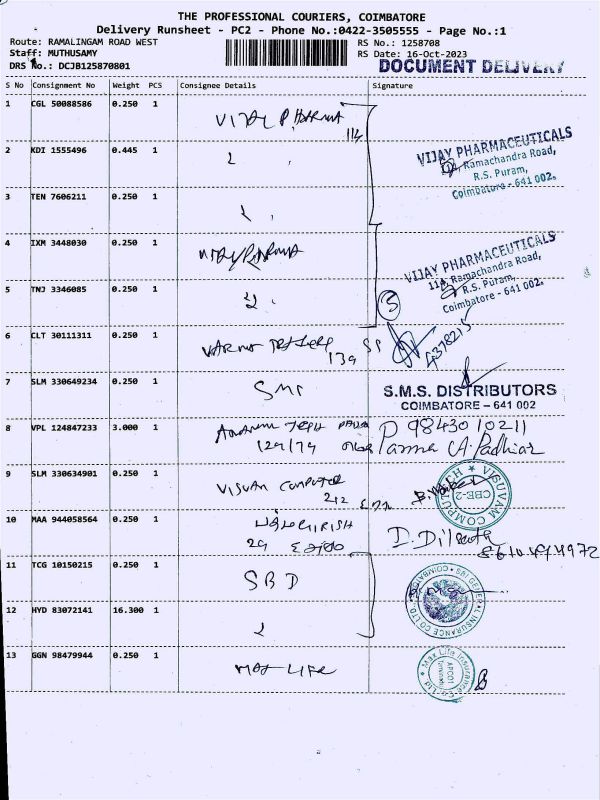 THE PROFESSIONAL COURIERS, COIMBATORE
Delivery Runsheet - PC2 - Phone No.:0422-3505555 - Page No.:1
Route: RAMALINGAM ROAD WEST
RS No.: 1258708
Staff: MUTHUSAMY
RS Date: 16-Oct-2023
DRS No.: DCJB125870801
DOCUMENT DELIVERY
S No Consignment No Weight PCS Consignee Details Signature
1 CGL 50088586 0.250 1 VIJAY PHARMA
114
2 KDI 1555496 0.445 1
VIJAY PHARMACEUTICALS
114, Ramachandra Road,
R.S. Puram,
Coimbatore - 641 002.
3 TEN 7606211 0.250 1
4 IXM 3448030 0.250 1
VIJAY PHARMACEUTICALS
114, Ramachandra Road,
R.S. Puram,
Coimbatore - 641 002.
5 TNJ 3346085 0.250 1
5
6 CLT 30111311 0.250 1 VARMA
139
4378215
7 SLM 330649234 0.250 1 SMS
S.M.S. DISTRIBUTORS
COIMBATORE – 641 002
8 VPL 124847233 3.000 1
129/74
9843010211
A. Padhiar
9 SLM 330634901 0.250 1 VISUAM COMPUTER
212
VISUVAM COMPUTECH
CBE-2
10 MAA 944058564 0.250 1 GIRISH
29
D.
11 TCG 10150215 0.250 1 SBI
SBI GENERAL INSURANCE CO LTD. COIMBATORE
12 HYD 83072141 16.300 1
13 GGN 98479944 0.250 1 MAX LIFE
Max Life Insurance Co. Ltd